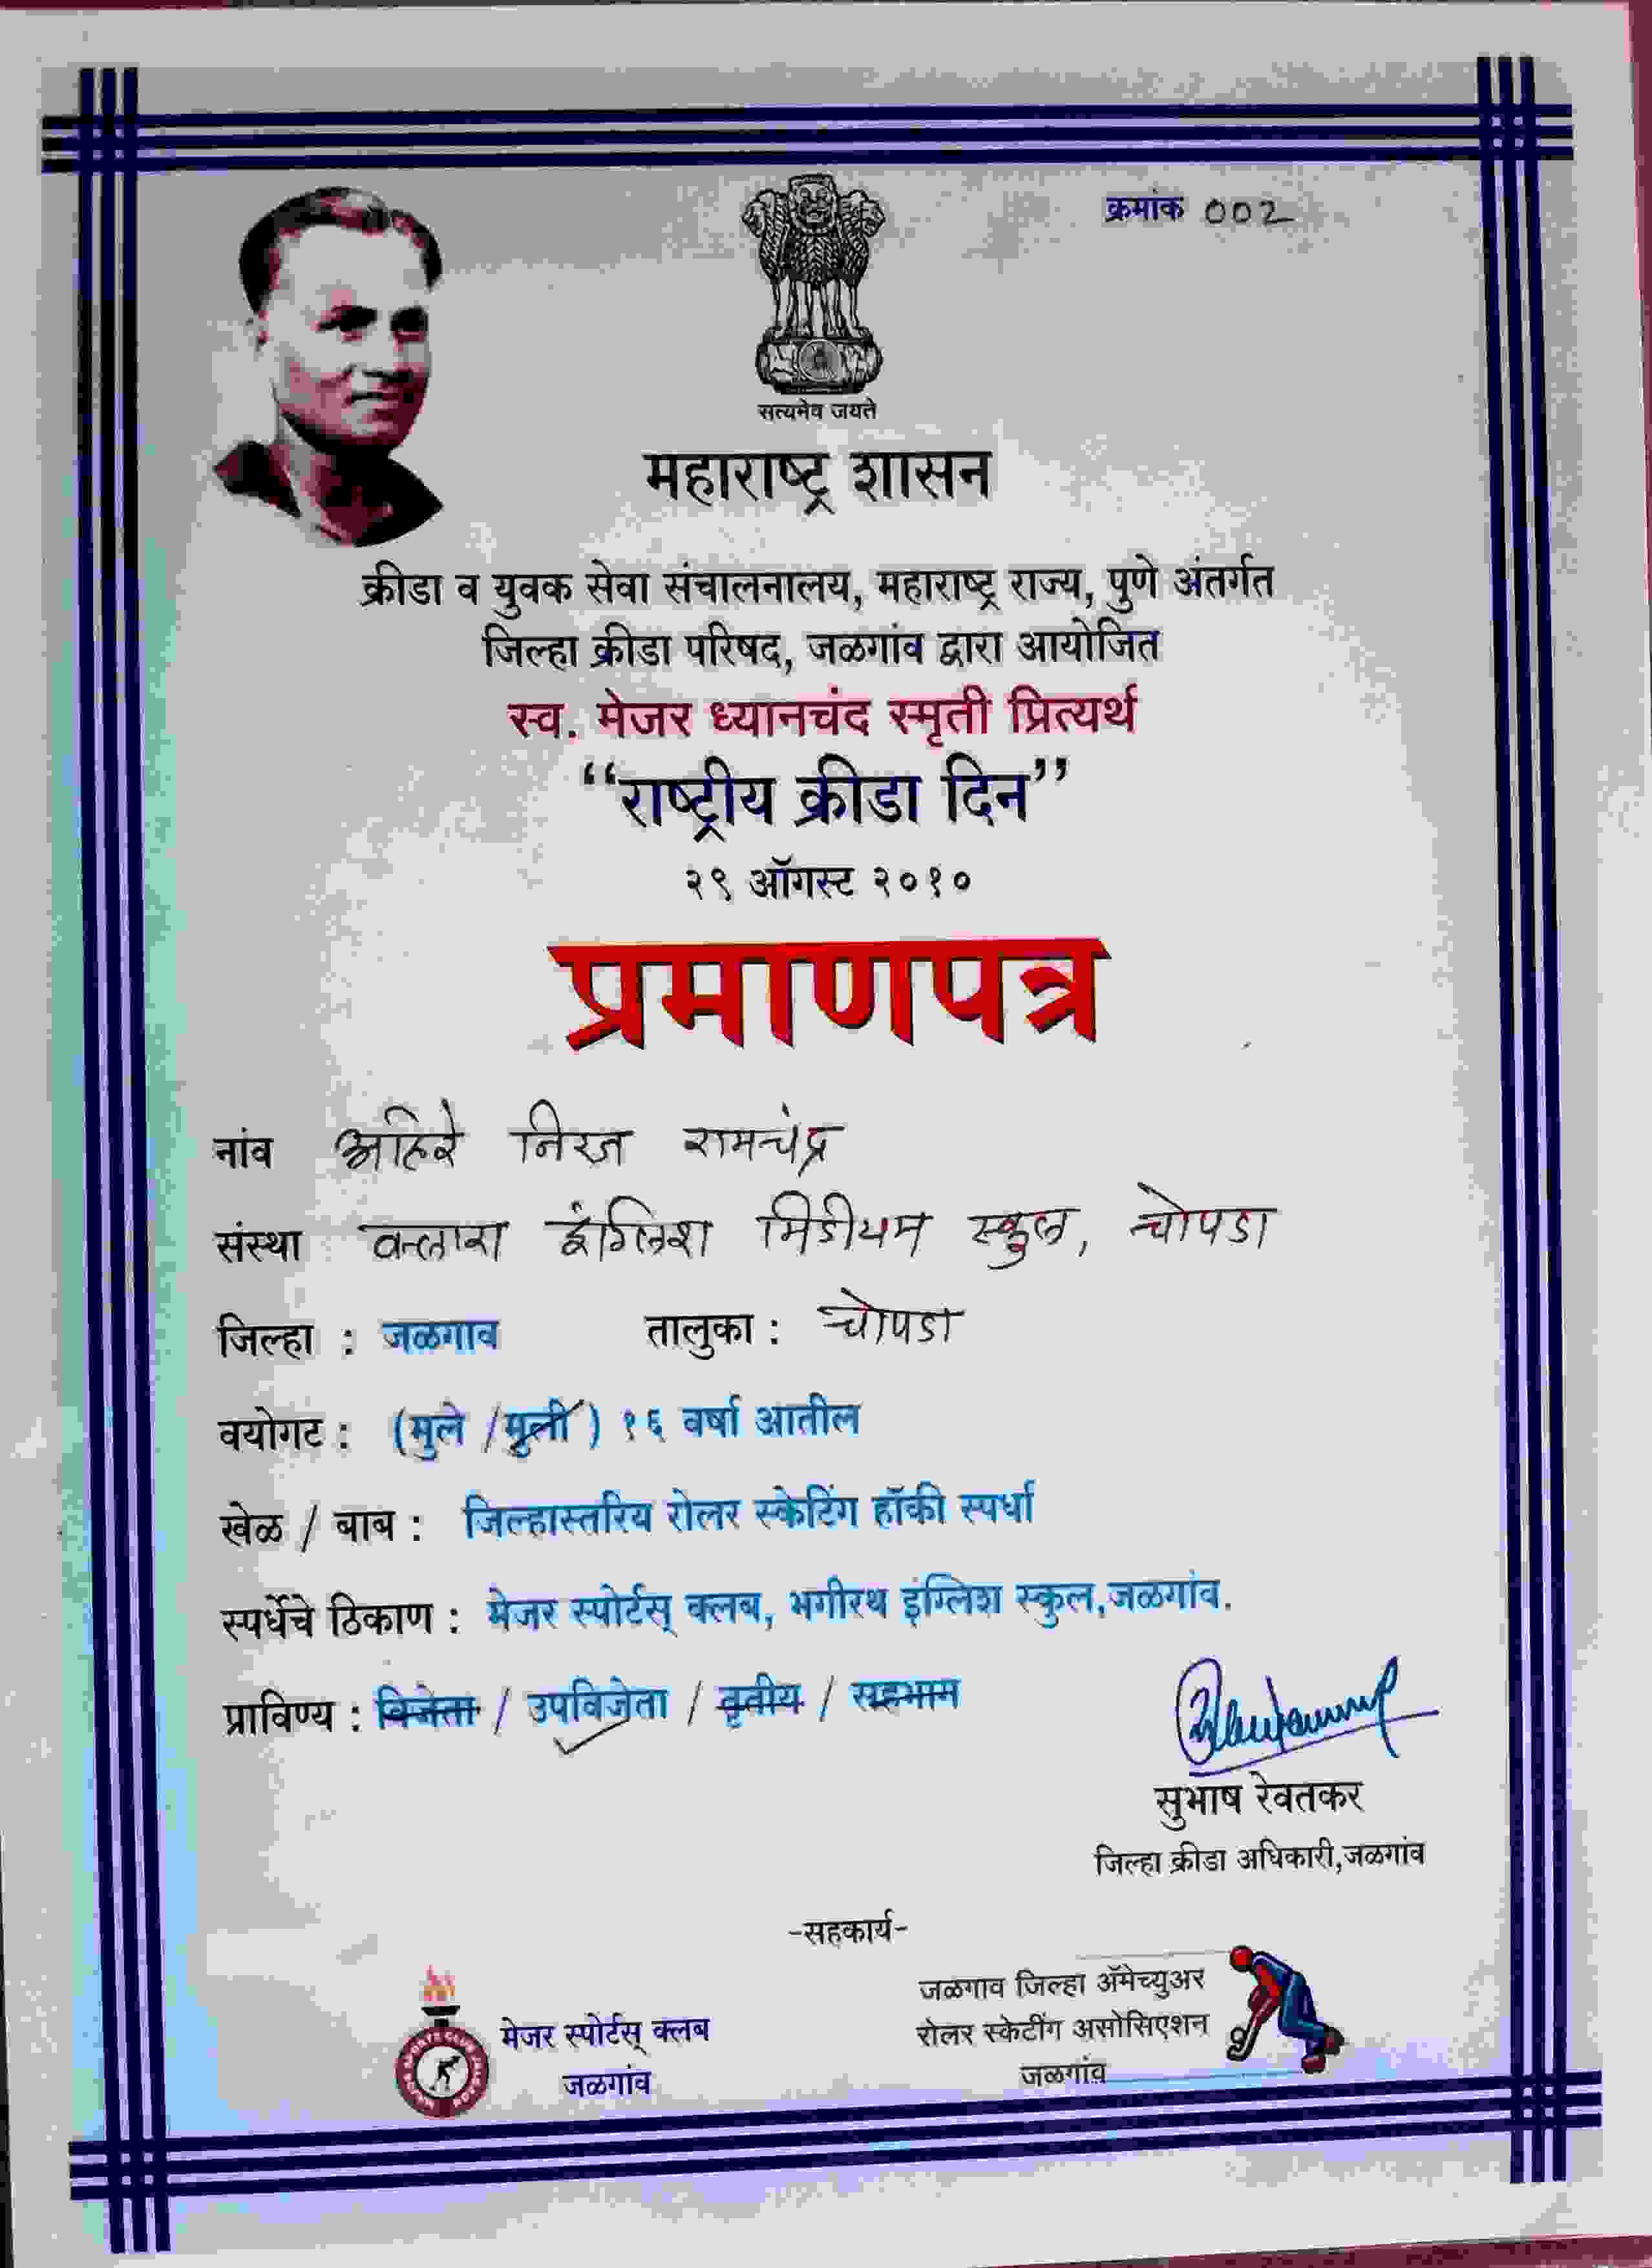 क्रमांक 002
सत्यमेव जयते
महाराष्ट्र शासन
क्रीडा व युवक सेवा संचालनालय, महाराष्ट्र राज्य, पुणे अंतर्गत
जिल्हा क्रीडा परिषद, जळगांव द्वारा आयोजित
स्व. मेजर ध्यानचंद स्मृती प्रित्यर्थ
“राष्ट्रीय क्रीडा दिन”
२९ ऑगस्ट २०१०
प्रमाणपत्र
नांव अहिरे निरज रामचंद्र
संस्था क्लारा इंग्लिश मिडीयम स्कुल, चोपडा
जिल्हा : जळगाव तालुका : चोपडा
वयोगट : (मुले /मुली) १६ वर्षा आतील
खेळ / बाब : जिल्हास्तरिय रोलर स्केटिंग हॉकी स्पर्धा
स्पर्धेचे ठिकाण : मेजर स्पोर्टस् क्लब, भगीरथ इंग्लिश स्कुल,जळगांव.
प्राविण्य : विजेता / उपविजेता / तृतीय / सहभाग
सुभाष रेवतकर
जिल्हा क्रीडा अधिकारी,जळगांव
-सहकार्य-
मेजर स्पोर्टस् क्लब
जळगांव
जळगाव जिल्हा ॲमेच्युअर
रोलर स्केटींग असोसिएशन
जळगांव